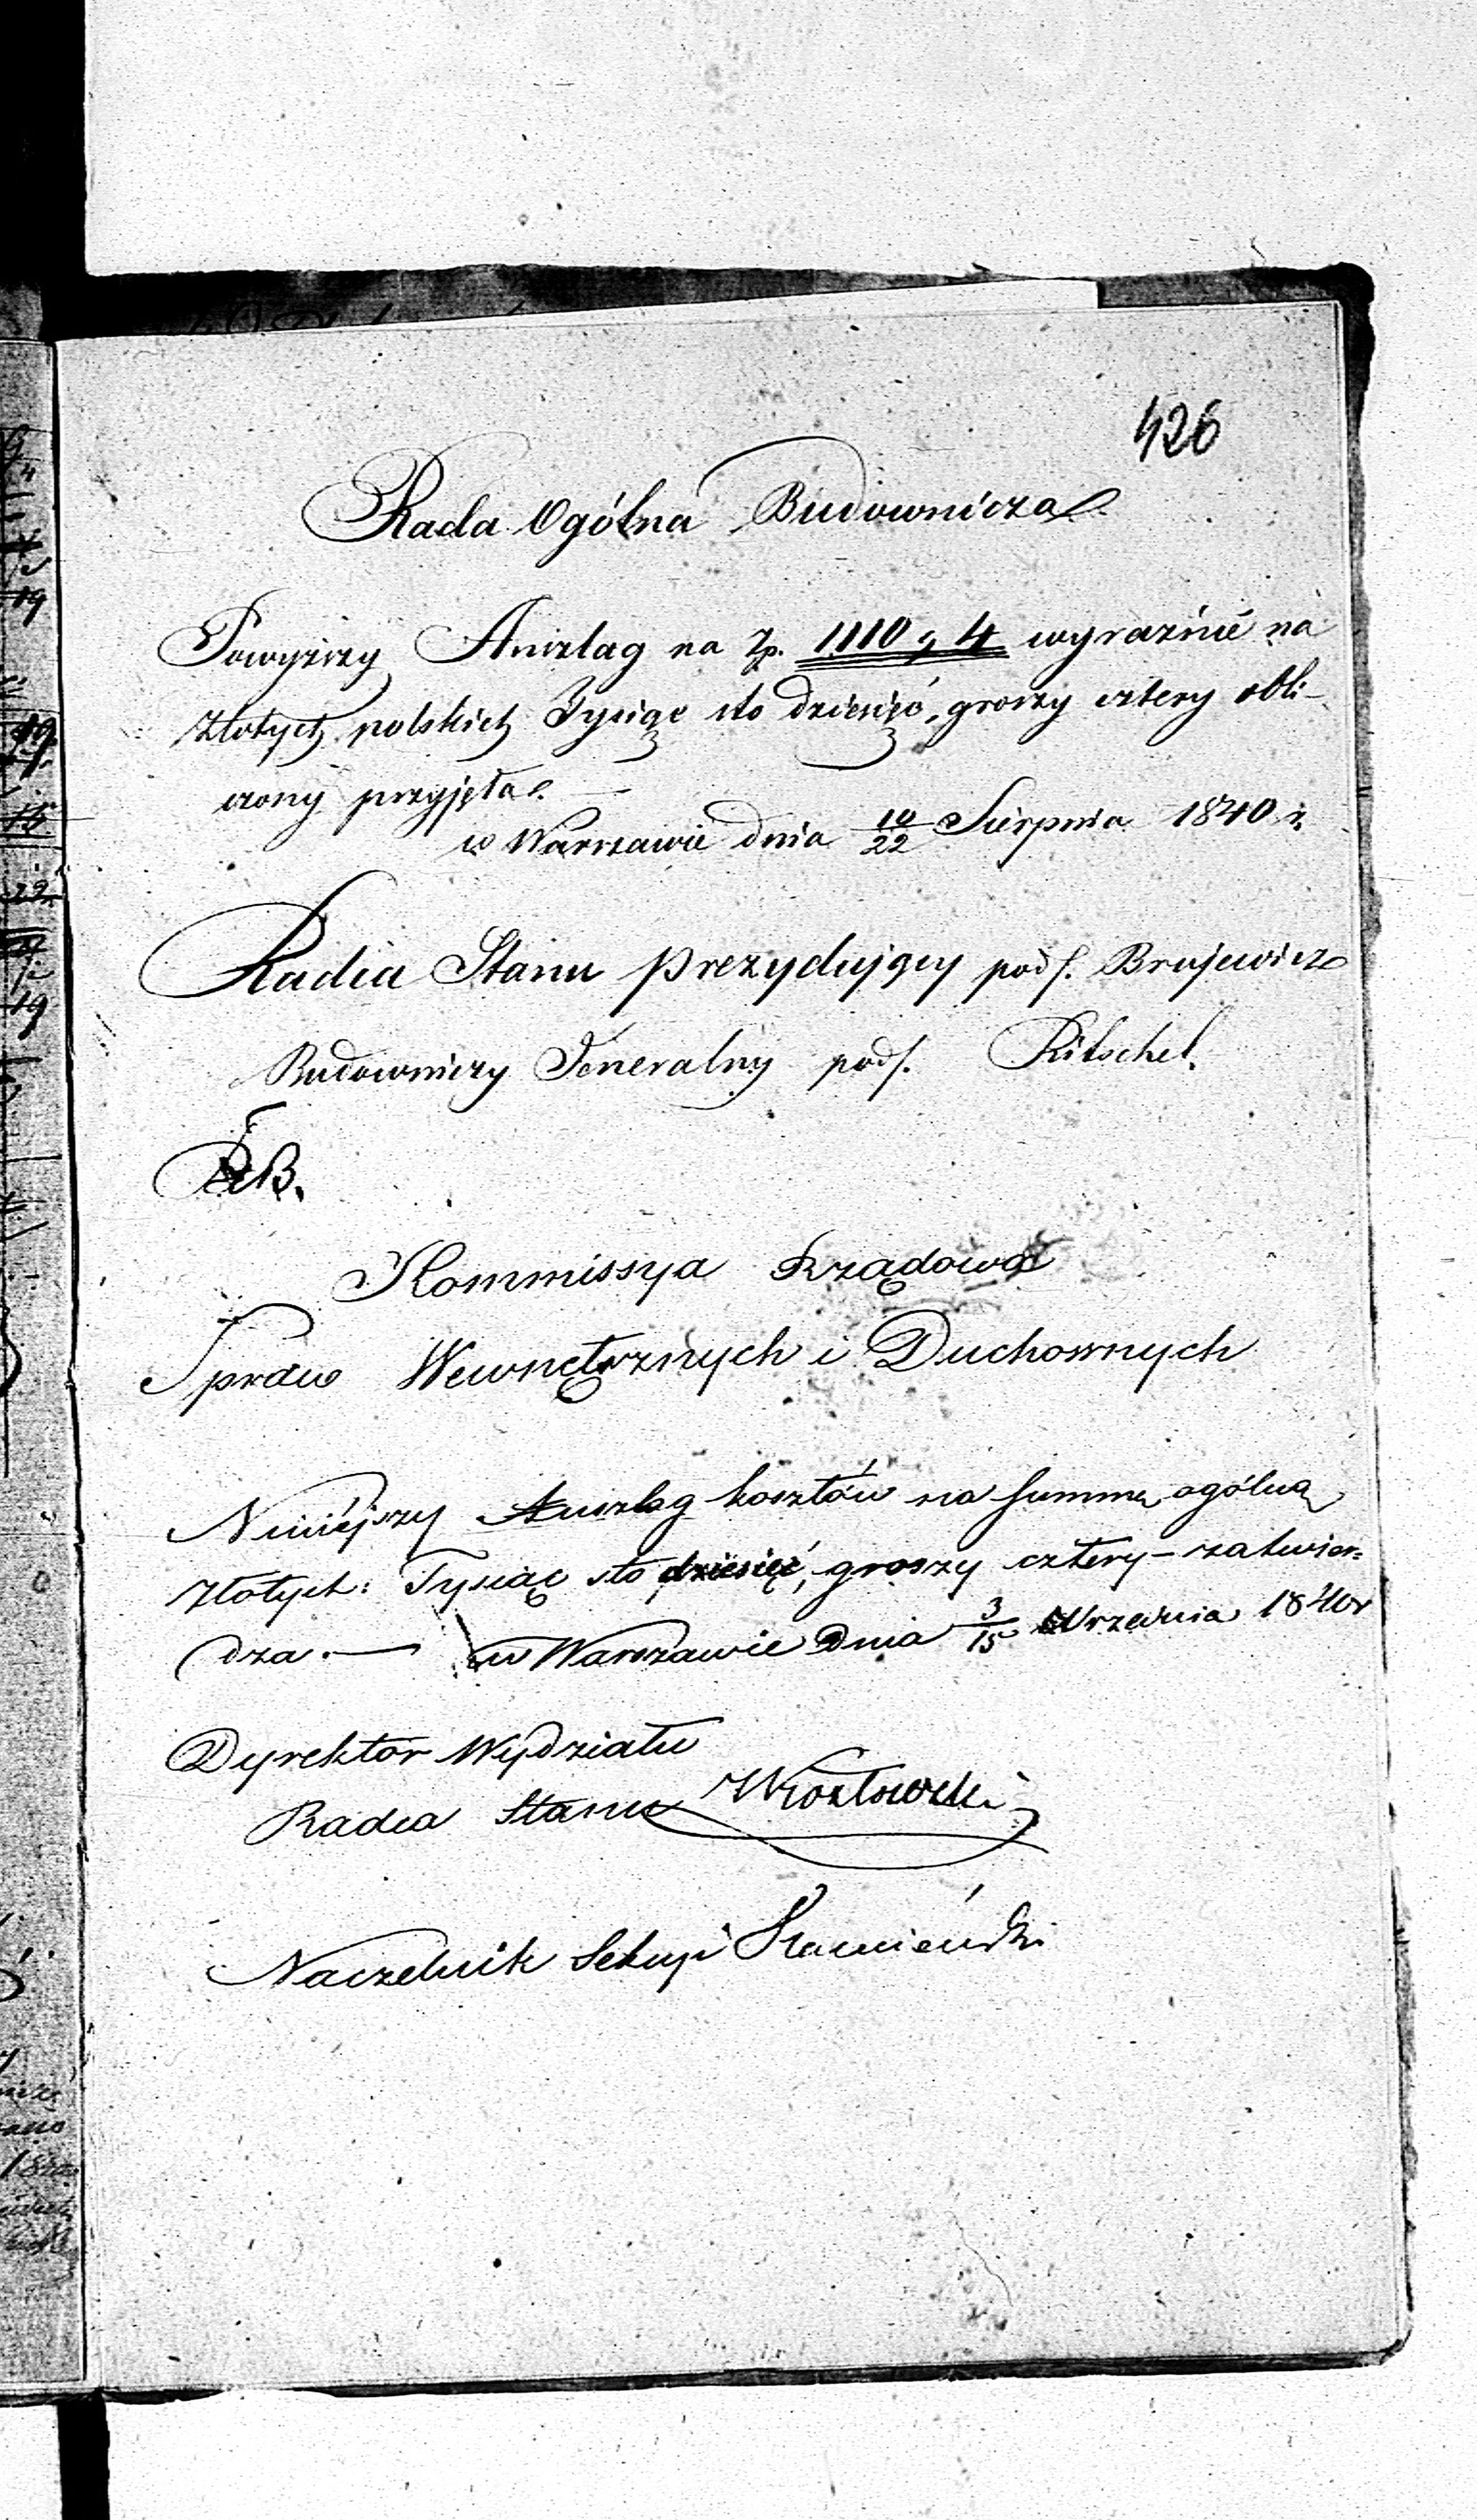 426
Rada Ogólna Budownicza
Powyższy Anszlag na Zp. 1110 g 4 wyraźnie na
złotych polskich Tysiąc sto dziesięć, groszy cztery obli-
czony przyjęła. —
w Warszawie dnia 10/22 Sierpnia 1840 r.
Radca Stanu Prezydujący pods.
Budowniczy Jeneralny pods. Ritschel.
Kommissya Rządowa
Spraw Wewnętrznych i Duchownych
Niniéjszy Anszlag kosztów na summę ogólną
Złotych: Tysiąc sto dziesięć, groszy cztery – zatwier=
dza. — w Warszawie Dnia 3/15 Września 1840 r
Dyrektor Wydziału
Radca Stanu Kozłowski
Naczelnik Sekcyi Kamieński